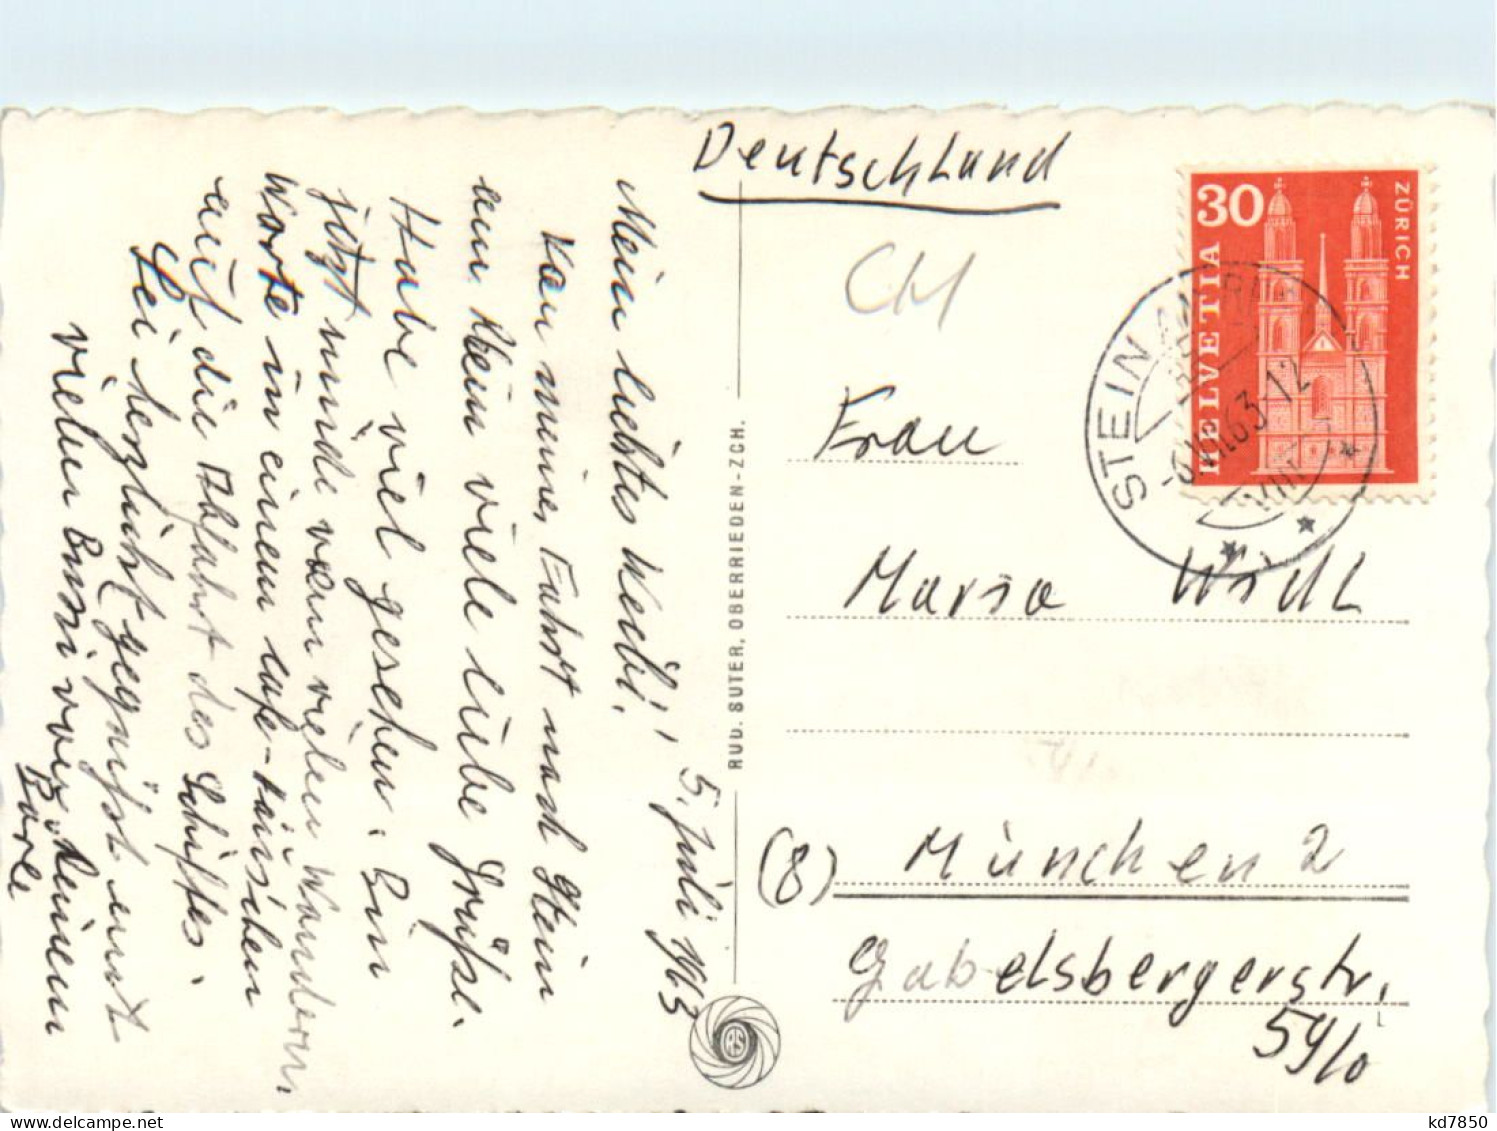 5. Juli 1963
Mein liebes Weibi!
Von meiner Fahrt nach Stein
am Rhein viele liebe Grüße.
Habe viel gesehen. Bin
jetzt müde vom vielen Wandern.
Warte in einem Café-Häuschen
auf die Abfahrt des Schiffes.
Sei herzlichst gegrüßt und
vielen Bussi von deinem
RUD. SUTER, OBERRIEDEN-ZCH.
RS
Deutschland
CH
30
HELVETIA
ZÜRICH
STEIN AM RHEIN
-6.VII.63-12
VIII
Frau
Maria
(8) München 2
Gabelsbergerstr.